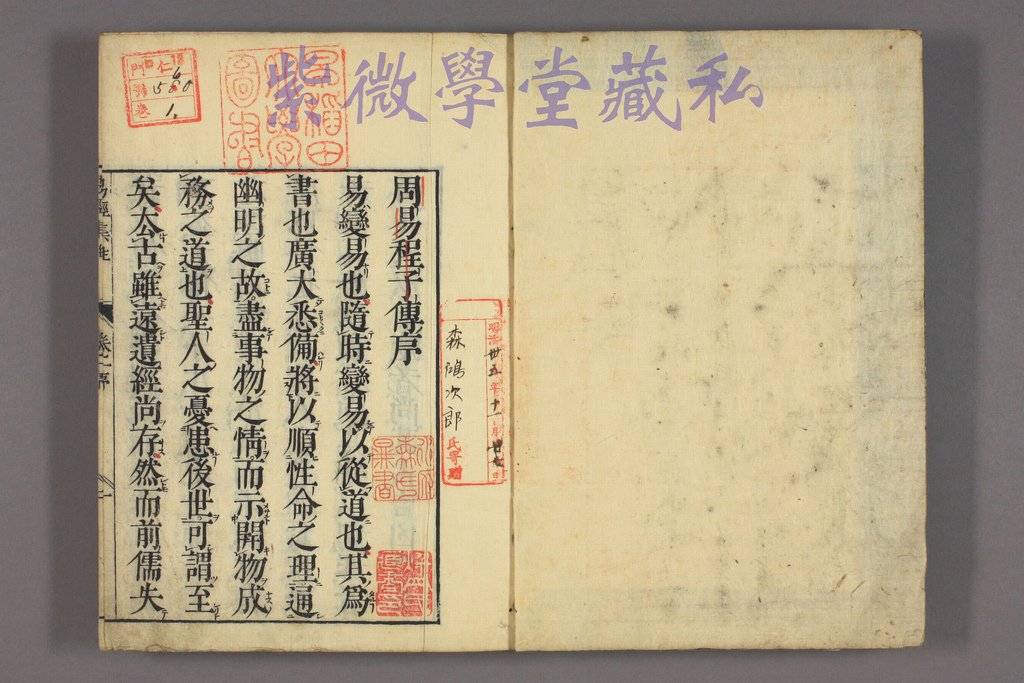 紫微學堂藏私
周易程子傳序
易變易也隨時變易以從道也其爲
書也廣大悉備將以順性命之理通
幽明之故盡事物之情而示開物成
務之道也聖人之憂患後世可謂至
矣太古雖遠遺經尚存然而前儒失
易經集註
卷之一序
明治廿五年十一月廿七日
森鴻次郎
氏寄贈
門 仁
號 580
卷 1.
早稲田
圖書